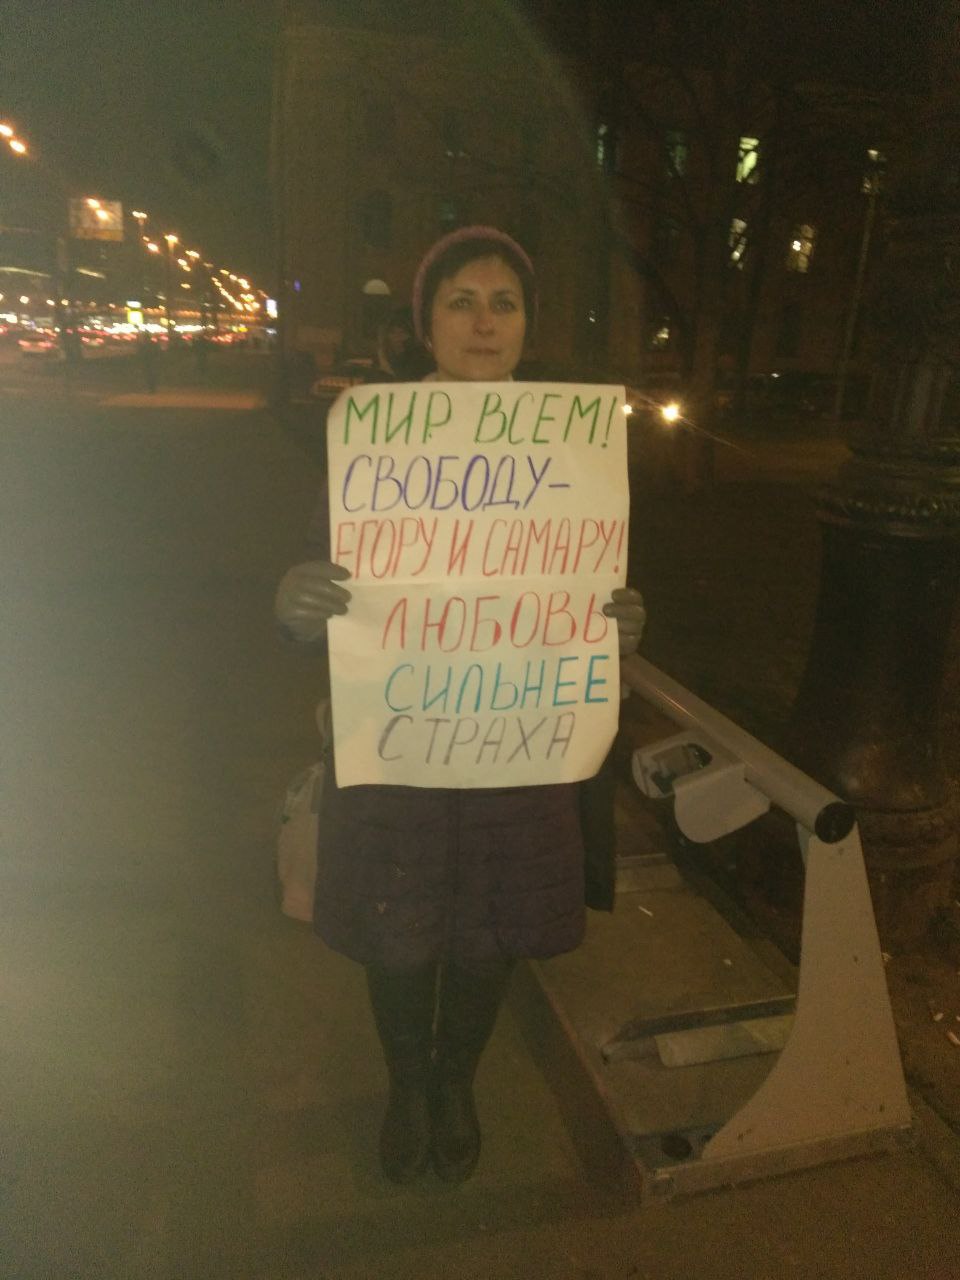 МИР ВСЕМ!
СВОБОДУ-
ЕГОРУ И САМАРУ!
ЛЮБОВЬ
СИЛЬНЕЕ
СТРАХА